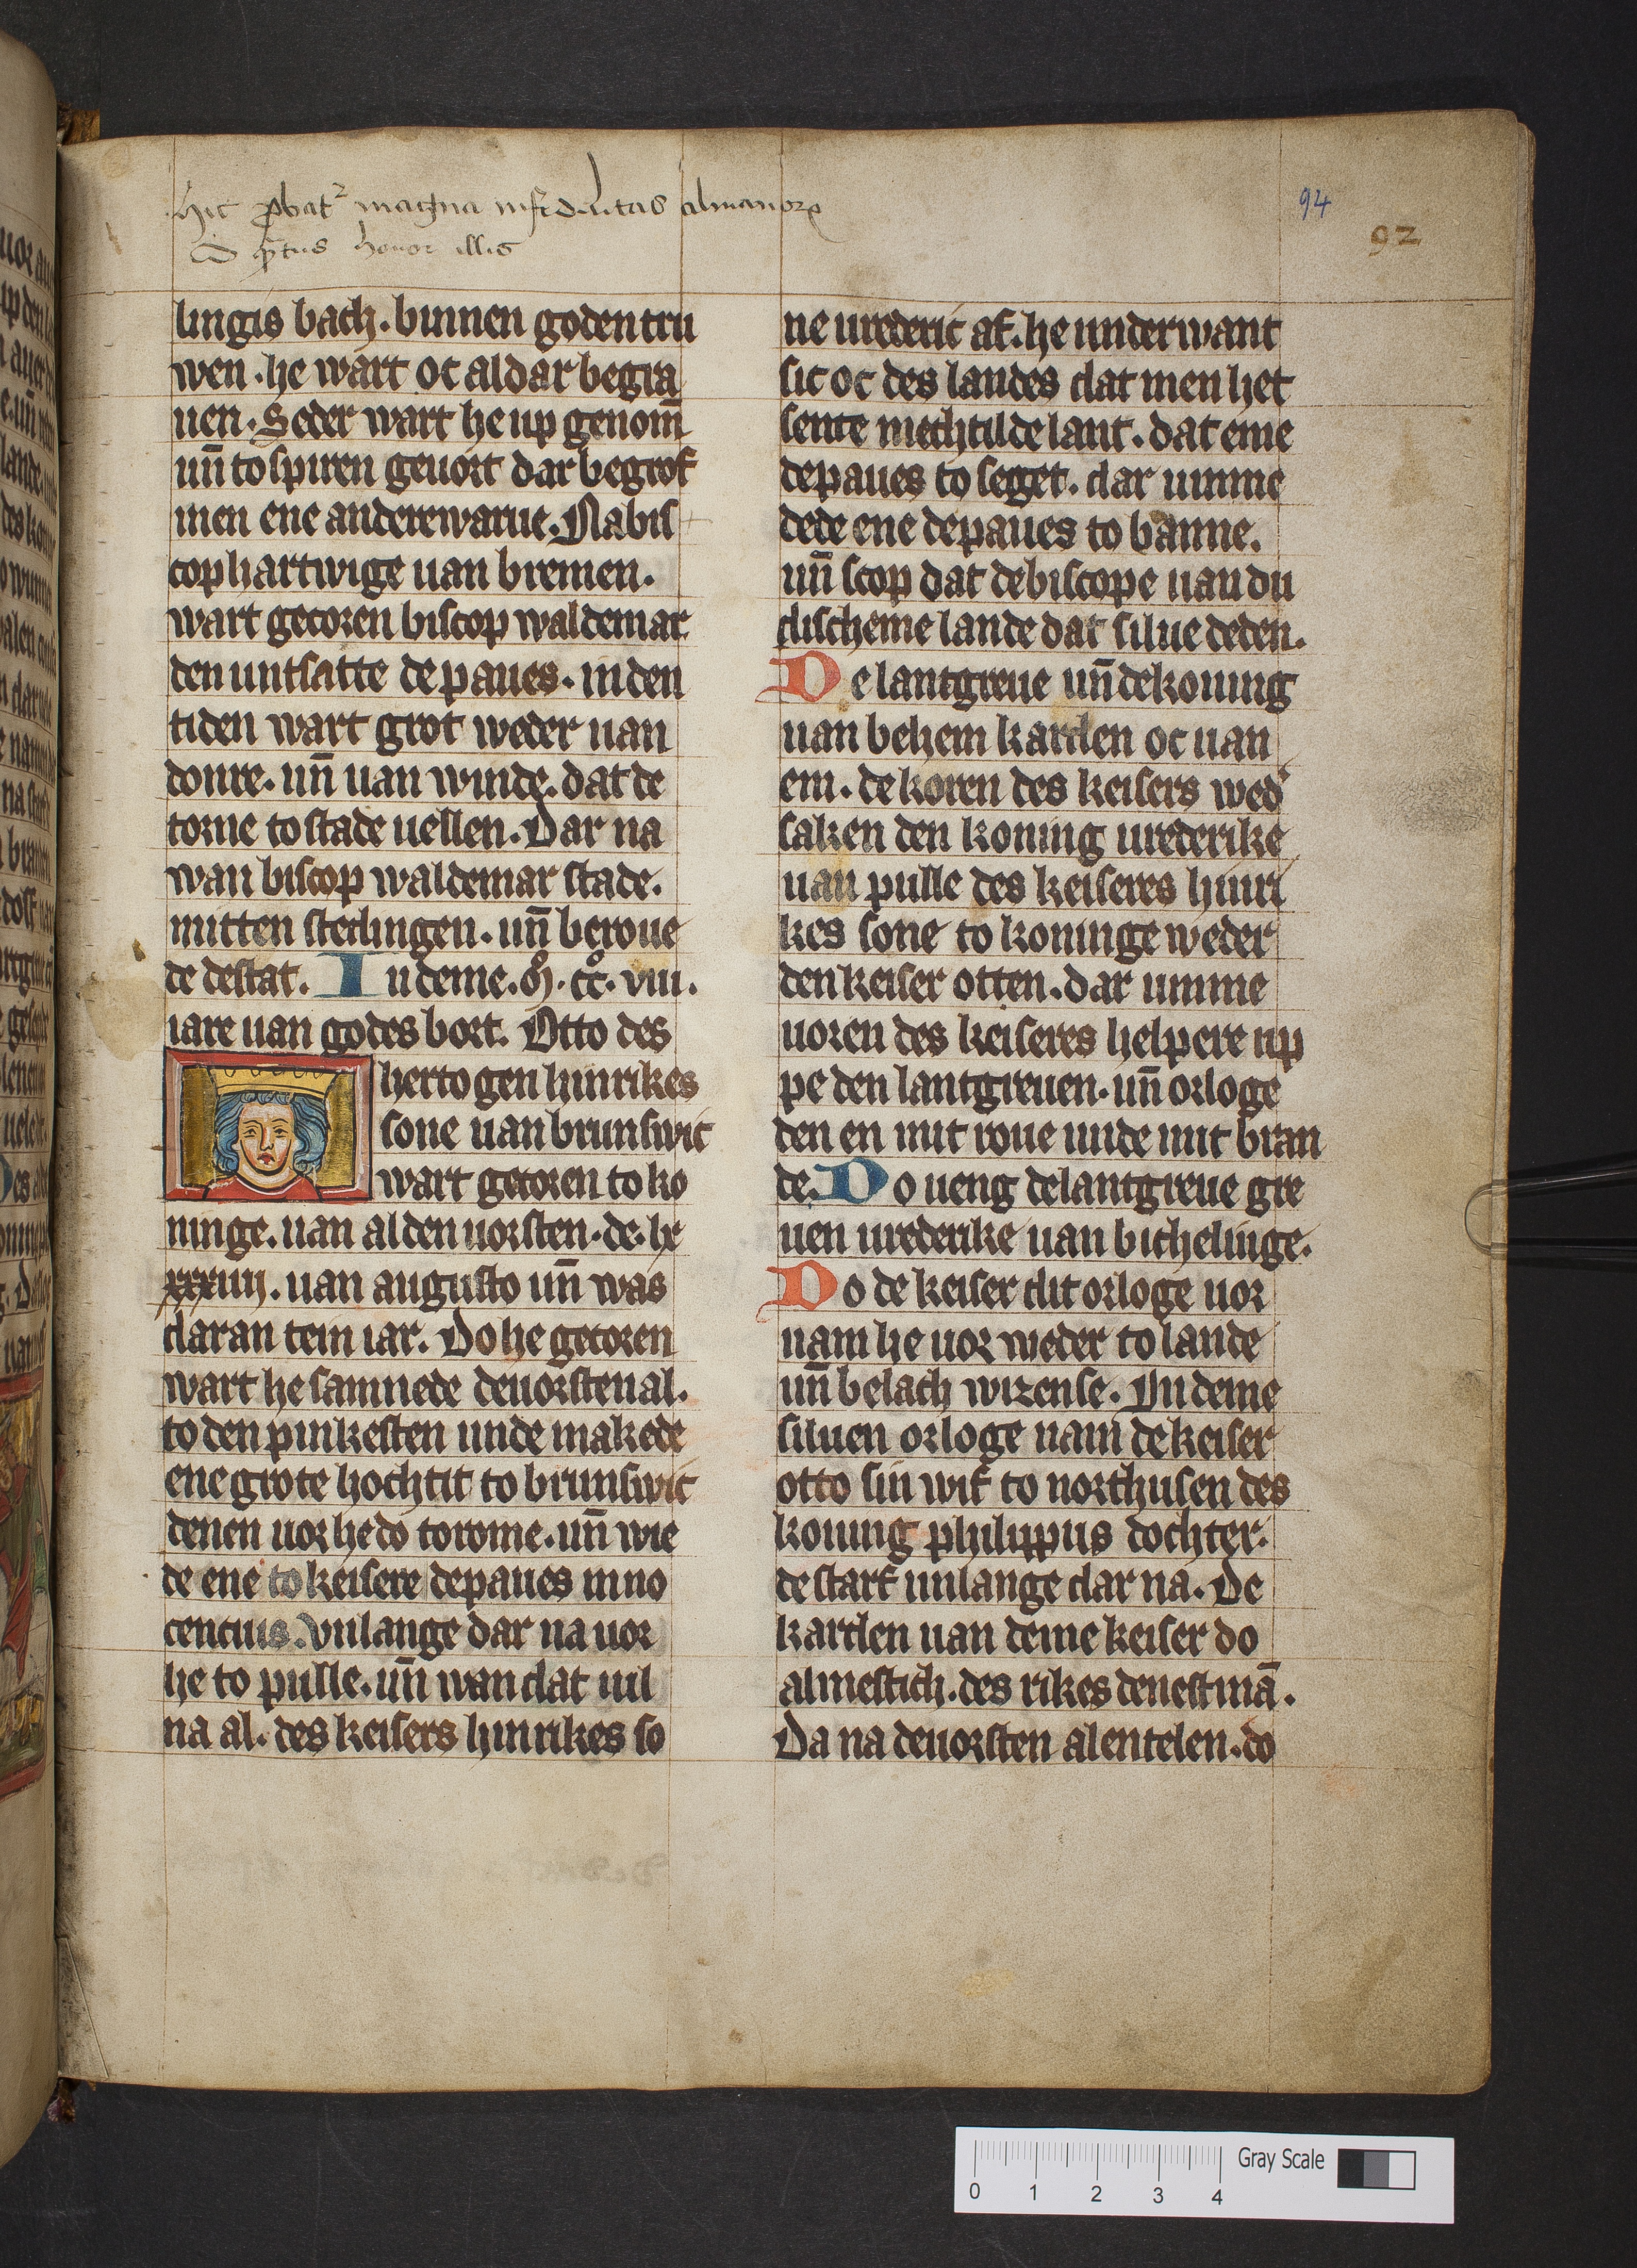 hic ꝓbat᷑ magna infidelitas almanoꝝ
94
92
honor illis
lingis bach. binnen goden tru
wen. he wart oc aldar begra
uen. Seder wart he up genom̄
un̄ to spiren geuort dar begrof
men ene anderewarue. Nabis
cop hartwige uan bremen.
wart gecoren biscop waldemar
den untsatte de paues. in den
tiden wart grot weder uan
donre. un̄ uan winde. dat de
torne to stade uellen. Dar na
wan biscop waldemar stade.
mitten stedingen. un̄ beroue
de de stat. In deme. M. cc. viii.
iare uan godes bort. Otto des
hertogen hinrikes
sone uan brunswic
wart gecoren to ko
ninge. uan al den uorsten. de. lx
xxxiiii. uan augusto un̄ was
daran tein iar. Do he gecoren
wart he samnede de uorsten al.
to den pinkesten unde makede
ene grote hochtit to brunswic
denen uor he do to rome. un̄ wie
de ene to keisere de paues inno
cencius. Vnlange dar na uor
he to pulle. un̄ wan dat uil
na al. des keisers hinrikes so
ne urederic af. he underwant
sic oc des landes dat men het
sente mechtilde lant. dat eme
de paues to seget. dar umme
dede ene de paues to banne.
un̄ scop dat de biscope uan du
discheme lande dat silue deden.
De lantgreue un̄ de koning
uan behem karden oc uan
em. de koren des keisers wed᷑
saken den koning urederike
uan pulle des keiseres hinri
kes sone to koninge weder
den keiser otten. dar umme
uoren des keiseres helpere up
pe den lantgreuen. un̄ orloge
den en mit roue unde mit bran
de. Do ueng de lantgreue gre
uen urederike uan bichelinge.
Do de keiser dit orloge uor
nam he uor weder to lande
un̄ belach wizense. In deme
siluen orloge nam de keiser
otto sin wif to northusen des
koning philippus dochter.
de starf unlange dar na. De
karden uan deme keiser do
almestich. des rikes denestmā.
Da na de uorsten alentelen. do
0 1 2 3 4 Gray Scale